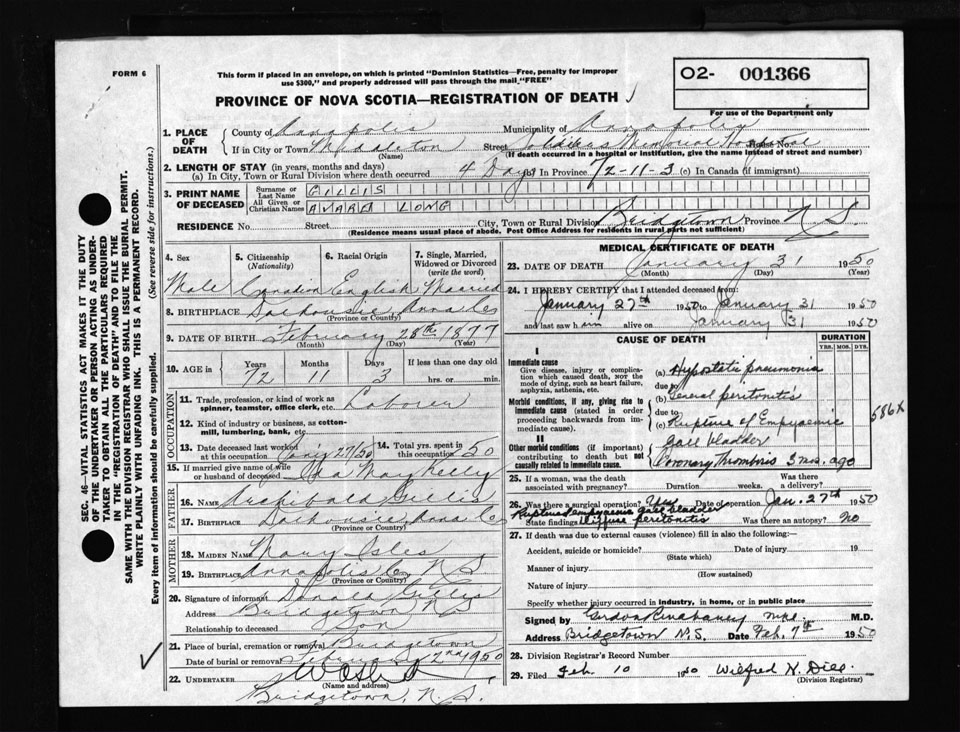 FORM 6
This form if placed in an envelope, on which is printed "Dominion Statistics—Free, penalty for improper
use $300," and properly addressed will pass through the mail, "FREE"
O2- 001366
For use of the Department only
PROVINCE OF NOVA SCOTIA—REGISTRATION OF DEATH
1. PLACE OF DEATH
County of Annapolis Municipality of Annapolis
If in City or Town Middleton Street Soldiers Memorial Hospital House No.
(Name) (If death occurred in a hospital or institution, give the name instead of street and number)
2. LENGTH OF STAY (in years, months and days)
(a) In City, Town or Rural Division where death occurred 4 Days (b) In Province 72-11-3 (c) In Canada (if immigrant)
3. PRINT NAME OF DECEASED
Surname or Last Name GILLIS
All Given or Christian Names AVARD LONG
RESIDENCE No. Street City, Town or Rural Division Bridgetown Province N S
(Residence means usual place of abode. Post Office Address for residents in rural parts not sufficient)
4. Sex 5. Citizenship (Nationality) 6. Racial Origin 7. Single, Married, Widowed or Divorced (write the word)
Male Canadian English Married
8. BIRTHPLACE Dalhousie Anna Co
(Province or County)
9. DATE OF BIRTH February 28th 1877
(Month) (Day) (Year)
10. AGE in Years Months Days If less than one day old
72 11 3 hrs. or min.
OCCUPATION
11. Trade, profession or kind of work as spinner, teamster, office clerk, etc. Laborer
12. Kind of industry or business, as cotton-mill, lumbering, bank, etc.
13. Date deceased last worked at this occupation Jan'y 27/50 14. Total yrs. spent in this occupation 50
15. If married give name of wife or husband of deceased Ida May Kelly
FATHER
16. Name Archibald Gillis
17. Birthplace Dalhousie Anna Co
(Province or County)
MOTHER
18. Maiden Name Mary Isles
19. Birthplace Annapolis Co N S
(Province or County)
20. Signature of informant Donald Gillis
Address Bridgetown N S
Relationship to deceased Son
21. Place of burial, cremation or removal Bridgetown
Date of burial or removal February 2nd 1950
22. UNDERTAKER
(Name and address)
Bridgetown, N. S.
MEDICAL CERTIFICATE OF DEATH
23. DATE OF DEATH January 31 1950
(Month) (Day) (Year)
24. I HEREBY CERTIFY that I attended deceased from:
January 27th 1950 to January 31 1950
and last saw him alive on January 31 1950
CAUSE OF DEATH DURATION
YRS. MOS. DYS.
I
Immediate cause
Give disease, injury or complication which caused death, not the mode of dying, such as heart failure, asphyxia, asthenia, etc.
(a) Hypostatic pneumonia
due to
Morbid conditions, if any, giving rise to immediate cause (stated in order proceeding backwards from immediate cause).
(b) General peritonitis
due to
(c) Rupture of Empyaemic gall bladder
586X
II
Other morbid conditions (if important) contributing to death but not causally related to immediate cause.
Coronary Thrombosis 3 mos. ago
25. If a woman, was the death associated with pregnancy? Duration weeks. Was there a delivery?
26. Was there a surgical operation? Yes Date of operation Jan. 27th 1950
Ruptured empyaemic gall bladder
State findings diffuse peritonitis Was there an autopsy? No
27. If death was due to external causes (violence) fill in also the following:—
Accident, suicide or homicide? Date of injury 19
(State which)
Manner of injury
(How sustained)
Nature of injury
Specify whether injury occurred in industry, in home, or in public place
Signed by M.D.
Address Bridgetown N.S. Date Feb. 7th 1950
28. Division Registrar's Record Number
29. Filed Feb. 10 1950 Wilfred H. Dill
(Division Registrar)
SEC. 46—VITAL STATISTICS ACT MAKES IT THE DUTY
OF THE UNDERTAKER OR PERSON ACTING AS UNDER-
TAKER TO OBTAIN ALL THE PARTICULARS REQUIRED
IN THE "REGISTRATION OF DEATH" AND TO FILE THE
SAME WITH THE DIVISION REGISTRAR WHO SHALL ISSUE THE BURIAL PERMIT.
WRITE PLAINLY WITH UNFADING INK. THIS IS A PERMANENT RECORD.
Every item of information should be carefully supplied. (See reverse side for instructions.)